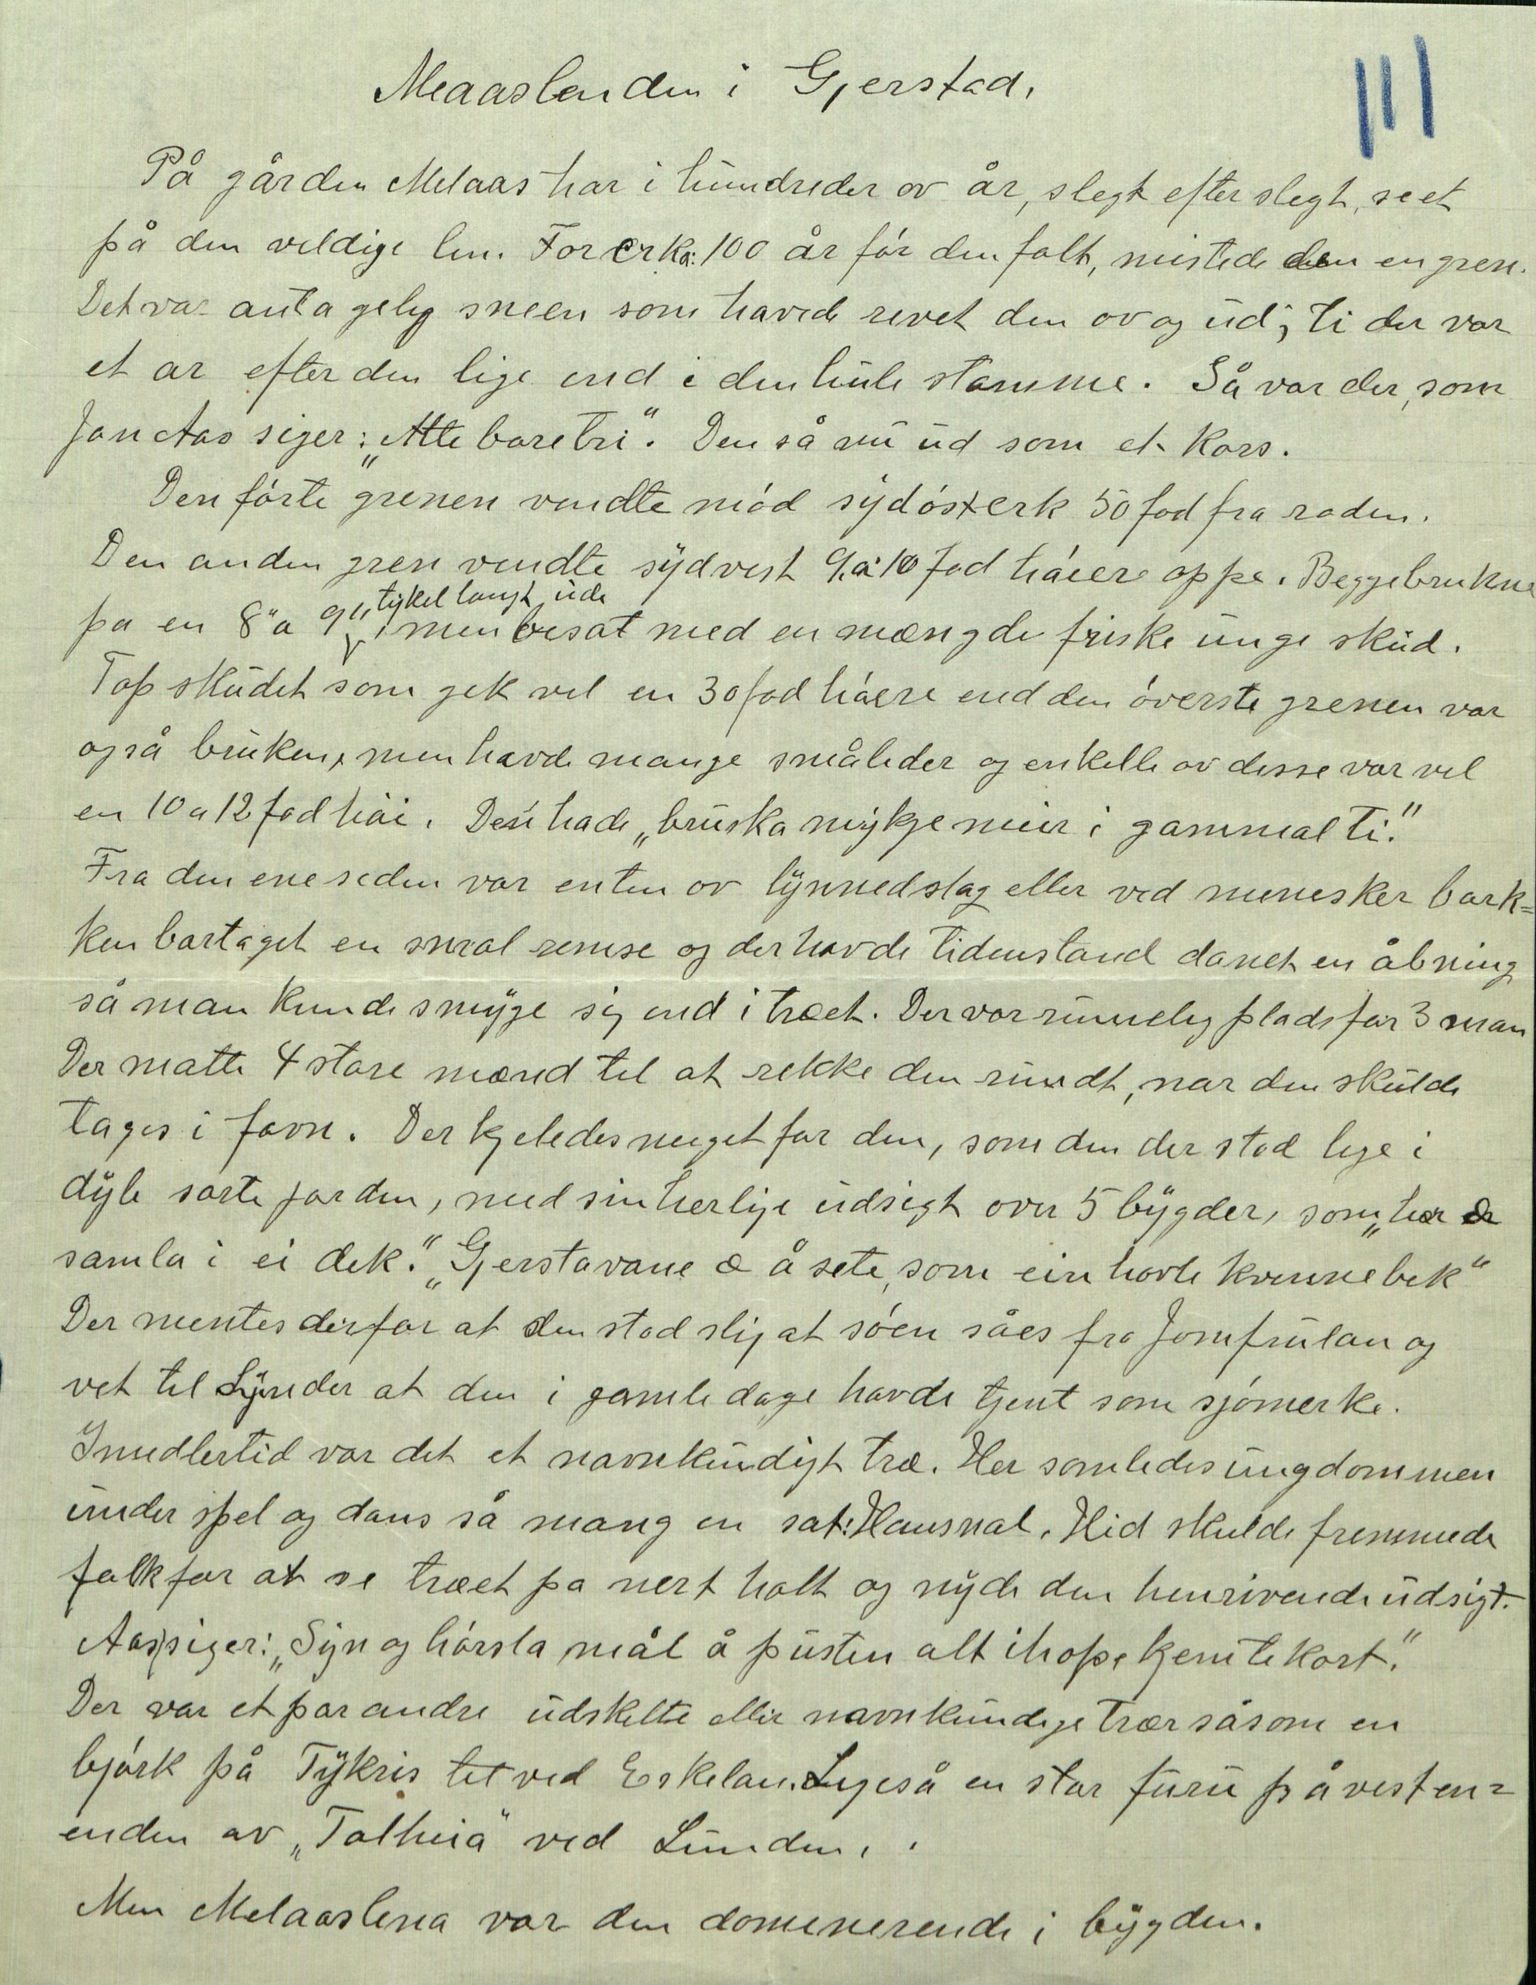 Meaaslinden i Gjerstad.
111
På gården Melaas har i hundreder ov år, slegt efter slegt, seet
på den veldige lin. For crka: 100 år før den falt, mistede den en gren.
Det var antagelig sneen som havde revet den ov og ud; ti der var
et ar efter den lige end i den hule stamme. Så var der, som
Jon Aas siger: „Atte bare tri". Den så nu ud som et kors.
Den førte grenen vendte mód sydøst crk 50 fod fra roden.
Den anden gren vendte sydvest 9 à 10 fod høiere oppe. Begge brukne
pa en 8" a 9", tykel langt ude men besat med en mængde friske unge skud.
Topskudet som gik vel en 30 fod høiere end den øverste grenen var
også bruken, men havde mange småleder og enkelte av desse var vel
en 10 a 12 fod høi. Den hade „bruska mykje meir i gammal ti."
Fra den ene siden var enten ov lynnedslag eller ved menesker bark=
ken bortaget en smal remse og der havde tidenstand danet en åbning
så man kunde smyge sig end i træet. Der var rummelig plads for 3 man
Der matte 4 store mænd til at rekke den rundt, nar den skulde
tages i favn. Der kjeledes meget for den, som den der stod lige i
dybe sorte jorden, med sin herlige udsigt over 5 bygder, som „her er
samla i ei dek." „Gjerstavane æ å sete, som ein hovle kvennebek"
Der mentes derfor at den stod slig at søen såes fra Jomfrulan og
vet til Lynder at den i gamle dage havde tjent som sjømerke.
Imedlertid var det et navnkundigt træ. Her samledes ungdommen
under spel og dans så mang en sat: Hansnat. Hid skulde fremmede
folk for at se træet pa nert holt og nyde den henrivende udsigt.
Aas siger: „Syn og hørsla, mål å pusten alt ihope kjem te kort."
Der var et par andre udskelte eller navnkundige trær såsom en
bjørk på Tykris tet ved Eskelan. Ligeså en stor furu på vesten=
enden av „Tolheia" ved Lunden.
Men Melaaslena var den domenerende i bygden.